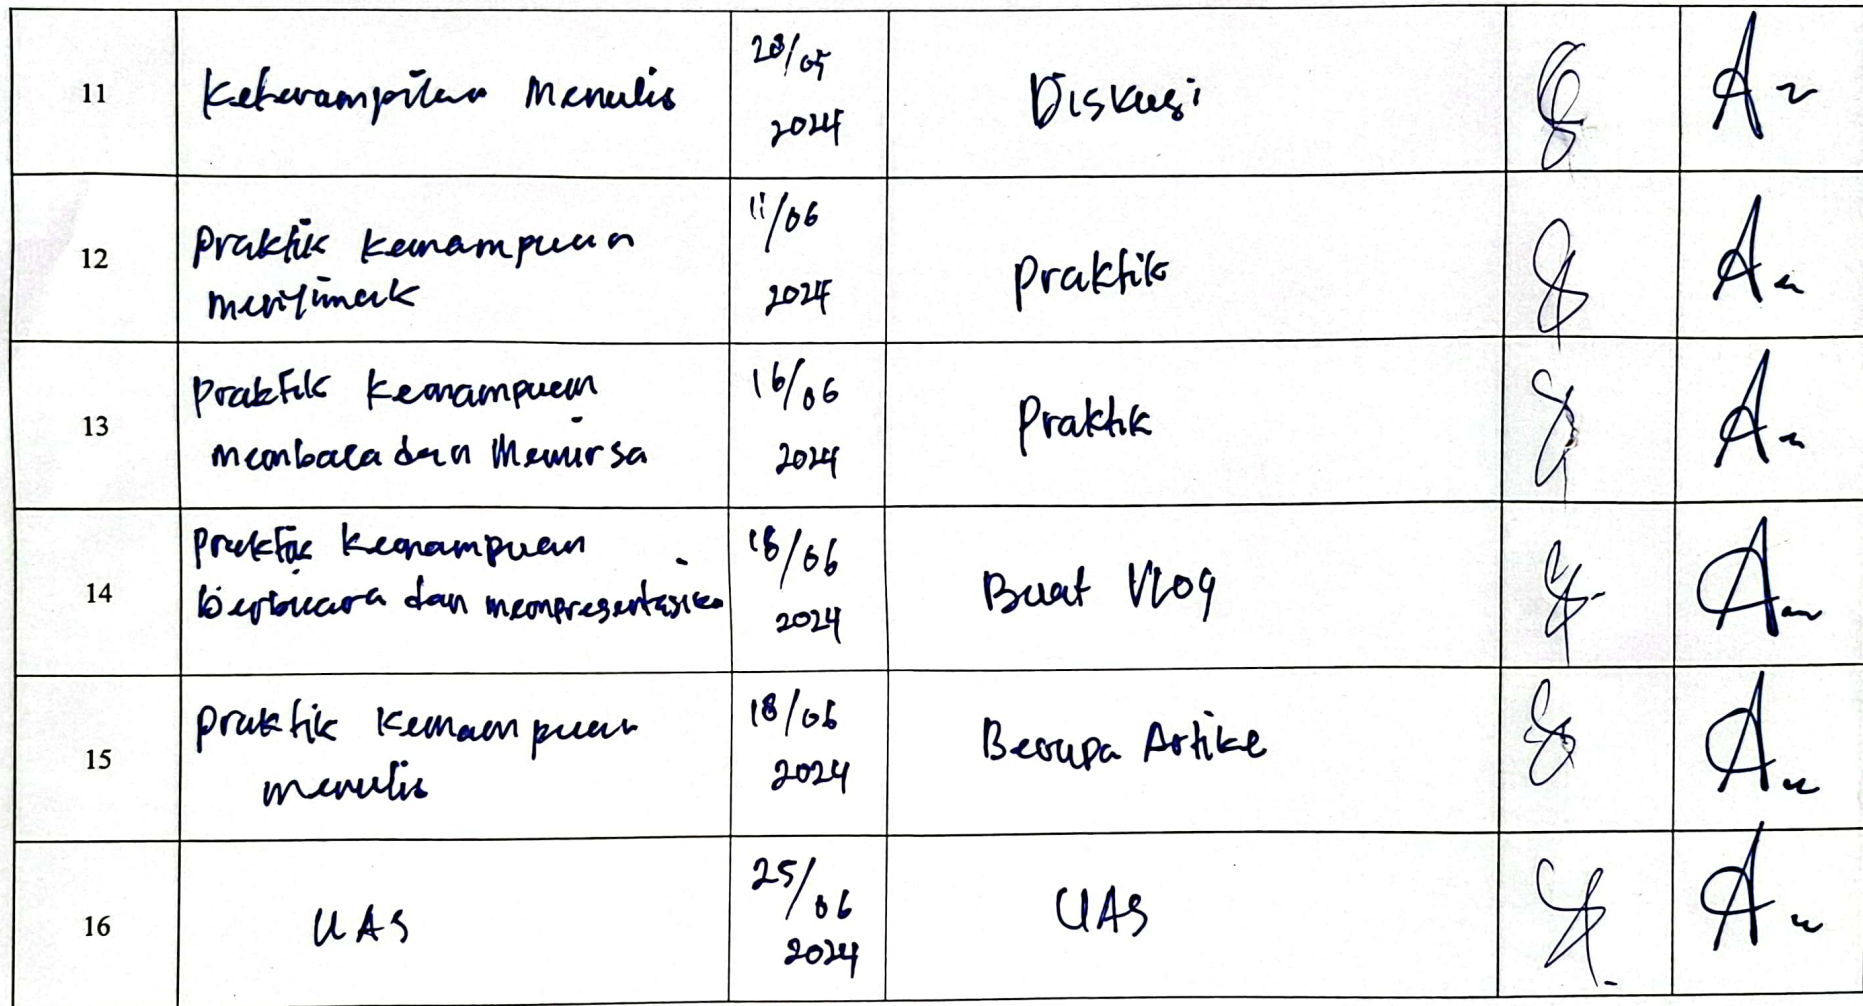 11
Keterampilan Menulis
28/05
2024
Diskusi
12
Praktik Kemampuan
menyimak
11/06
2024
Praktik
13
Praktik Kemampuan
membaca dan Memirsa
16/06
2024
Praktik
14
Praktik Kemampuan
berbicara dan mempresentasikan
18/06
2024
Buat Vlog
15
Praktik Kemampuan
menulis
18/06
2024
Berupa Artike
16
UAS
25/06
2024
UAS